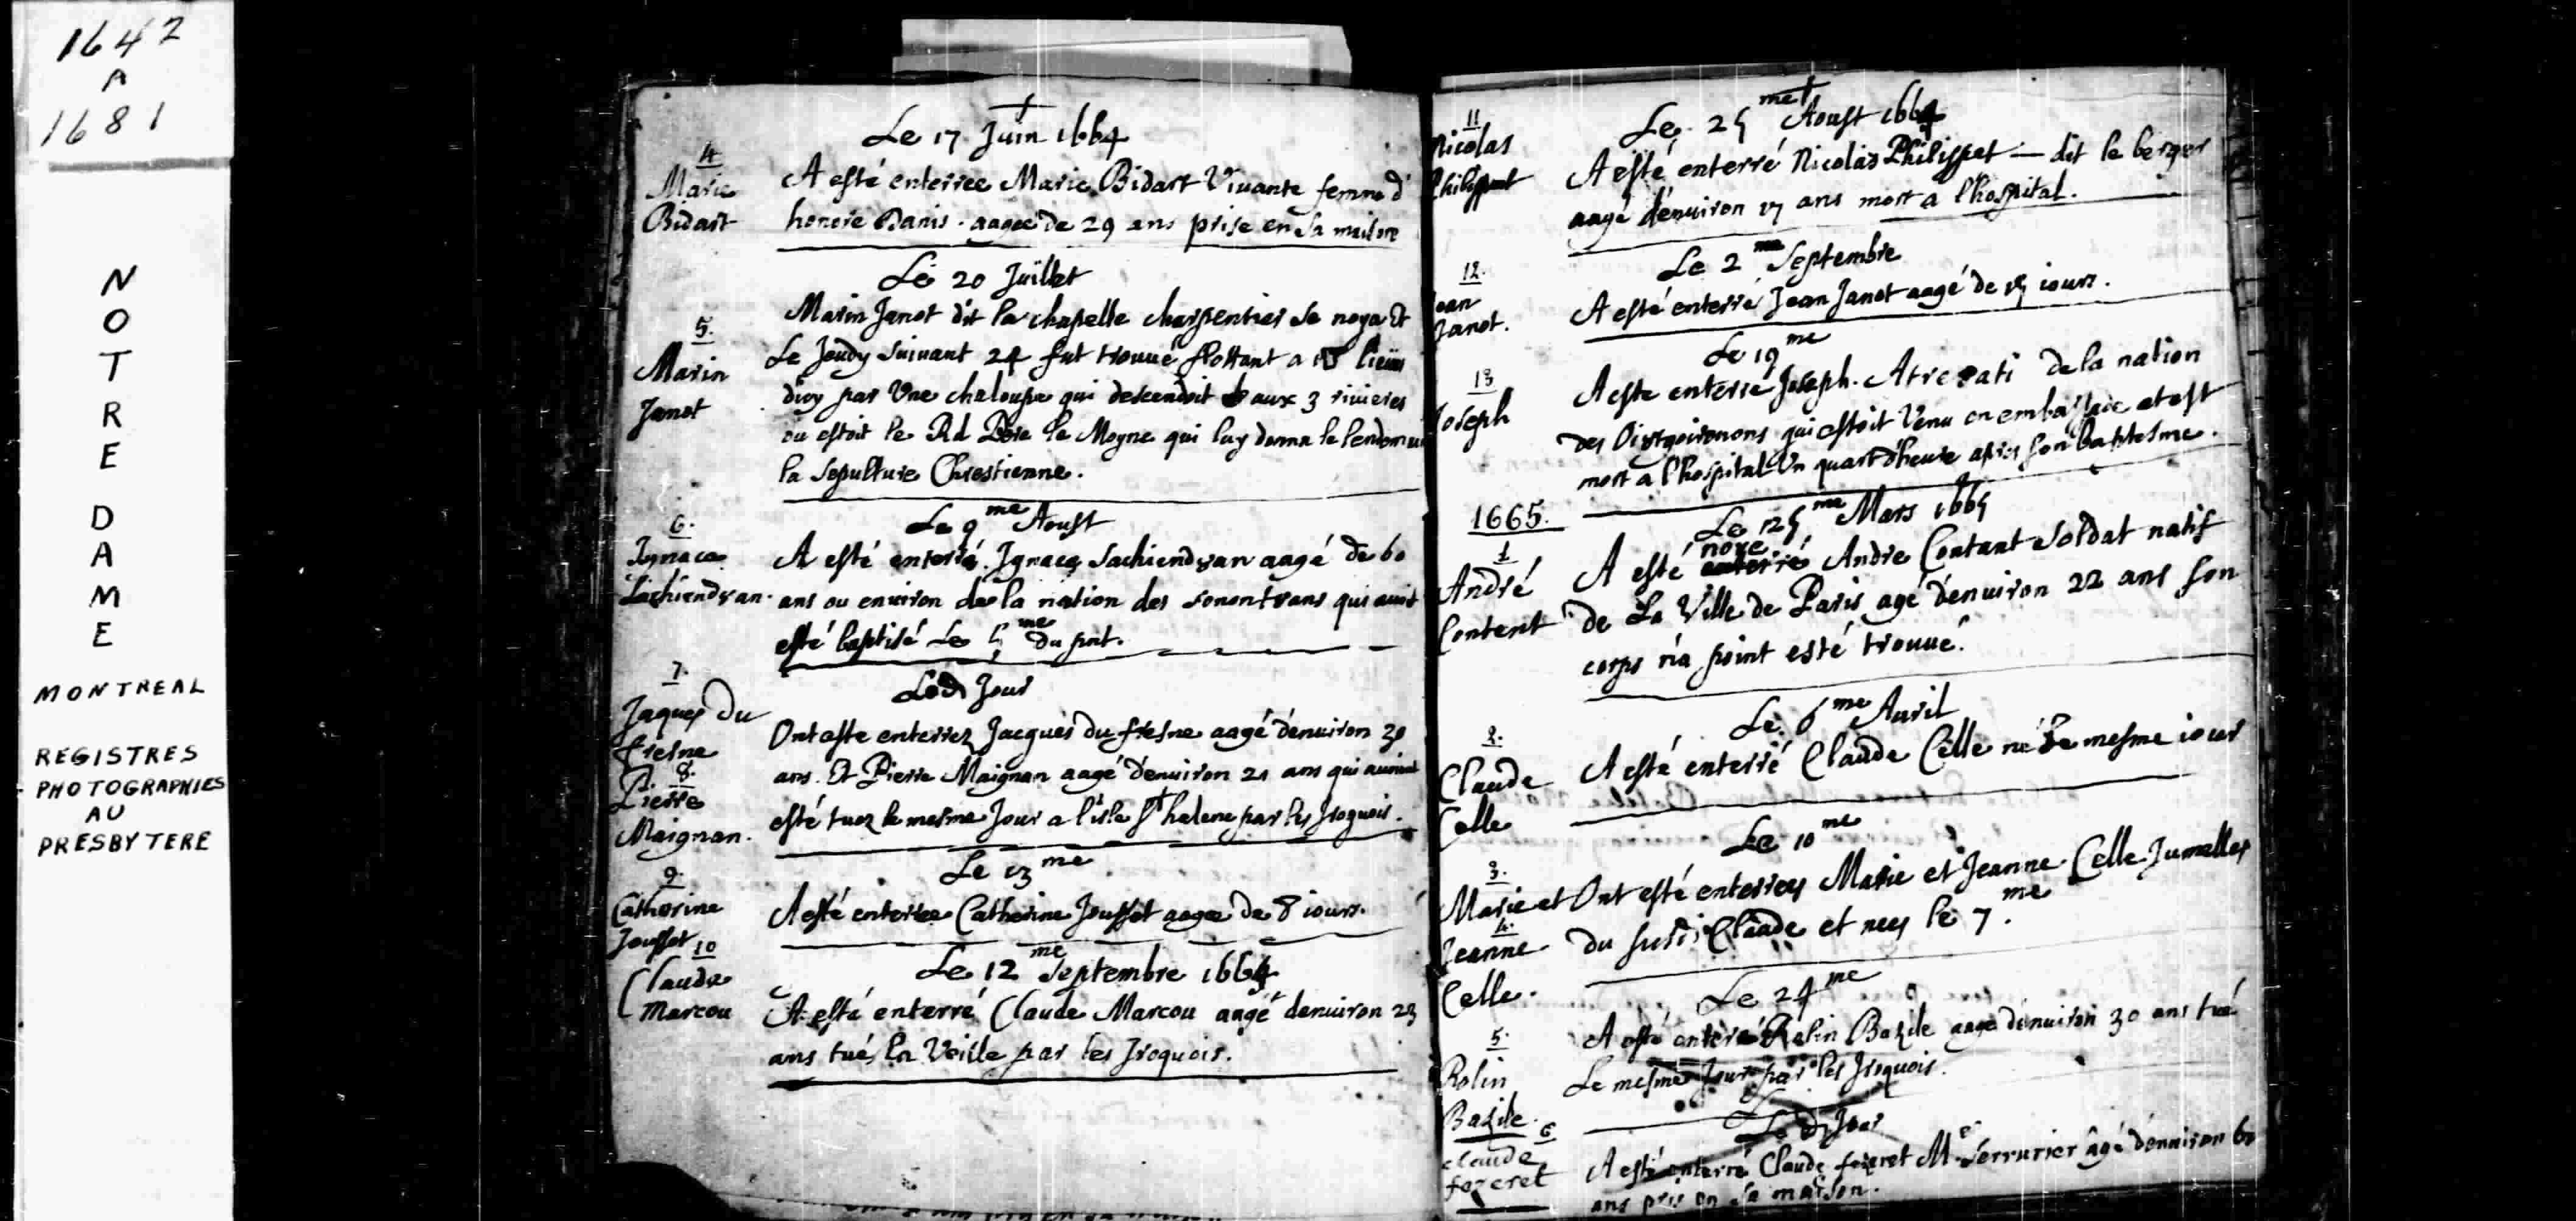 1642
A
1681
NOTRE
DAME
MONTREAL
REGISTRES
PHOTOGRAPHIES
AU
PRESBYTERE
Le 17 Juin 1664
4
Marie
Bidart
A esté enterree Marie Bidart Viuante femme d'
honoré Danis. aagee de 29 ans prise en sa maison
Le 20 Juillet
5.
Marin
Janot
Marin Janot dit la chapelle charpentier se noya et
Le Jeudy suiuant 24 fut trouué flottant a lieues
d'icy par Vne chaloupe qui descendoit aux 3 riuieres
ou estoit le Rd Pere le Moyne qui luy donna le lendemain
la sepulture Chrestienne.
Le 9me Aoust
6.
Ignace
Sachiendȣan.
A esté enterré. Ignace Sachiendȣan aagé de 60
ans ou enuiron de la nation des sonontȣans qui auoit
esté baptisé Le 5me du pnt.
Led Jour
7.
Jaques du
fresne
8.
Pierre
Maignan.
Ont este enterrez Jacques du fresne aagé d'enuiron 30
ans. Et Pierre Maignan aagé d'enuiron 21 ans qui auoient
esté tuez le mesme Jour a l'isle Ste helene par les Iroquois.
Le 13me
9.
Catherine
Jousset
A esté enterree Catherine Jousset aagee de 8 iours.
Le 12me Septembre 1664
10
Claude
Marcou
A esté enterré Claude Marcou aagé d'enuiron 23
ans tué la Veille par les Iroquois.
Le 25me Aoust 1664
11
Nicolas
Philippet
A esté enterré Nicolas Philippet — dit le berger
aagé d'enuiron 17 ans mort a l'hospital.
Le 2me Septembre
12.
Jean
Janot.
A esté enterré Jean Janot aagé de 15 iours.
Le 19me
13
Joseph
A este enterré Joseph. de la nation
des qui estoit Venu en embassade et est
mort a l'hospital Vn quart d'heure apres son baptesme.
1665.
Le 25me Mars 1665
1
André
Content
noyé
A esté enterré Andre Contant soldat natif
de La Ville de Paris agé d'enuiron 22 ans son
corps n'a point esté trouué.
Le 6me Auril
2.
Claude
Celle
A esté enterré Claude Celle né le mesme iour
Le 10me
3.
Marie et
4.
Jeanne
Celle.
Ont esté enterrees Marie et Jeanne Celle Jumelles
du susd. Claude et nees le 7me.
Le 24me
5.
Rolin
Bazile.
A esté enterré Rolin Bazile aagé d'enuiron 30 ans tué
Le mesme Jour par les Iroquois.
Le d. Jour
6
claude
fezeret
A esté enterré Claude fezeret Me Serrurier âgé d'enuiron 60
ans pris en sa maison.